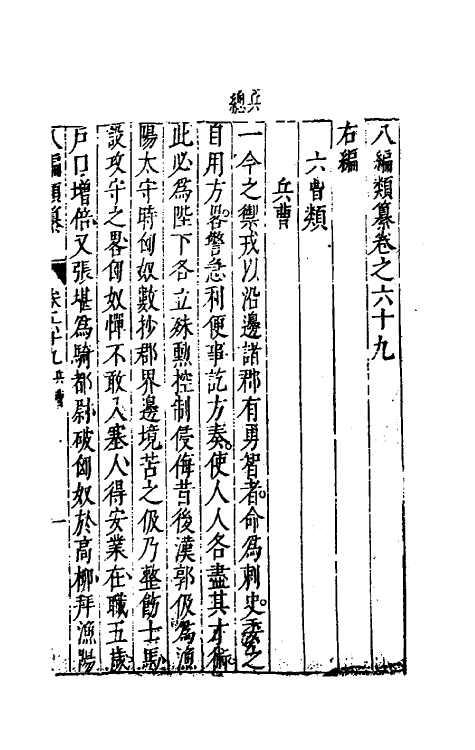 兵總
八編類纂卷之六十九
右編
六曹類
兵曹
一今之禦戎以沿邊諸郡有勇智者命爲刺史委之
自用方畧警急利便事訖方奏使人人各盡其才術
此必爲陛下各立殊勳控制侵侮昔後漢郭伋爲漁
陽太守時匈奴數抄郡界邊境苦之伋乃整飭士馬
設攻守之畧匈奴憚不敢入塞人得安業在職五歲
戶口增倍又張堪爲騎都尉破匈奴於高柳拜漁陽
八編類纂 卷六十九 兵曹 一